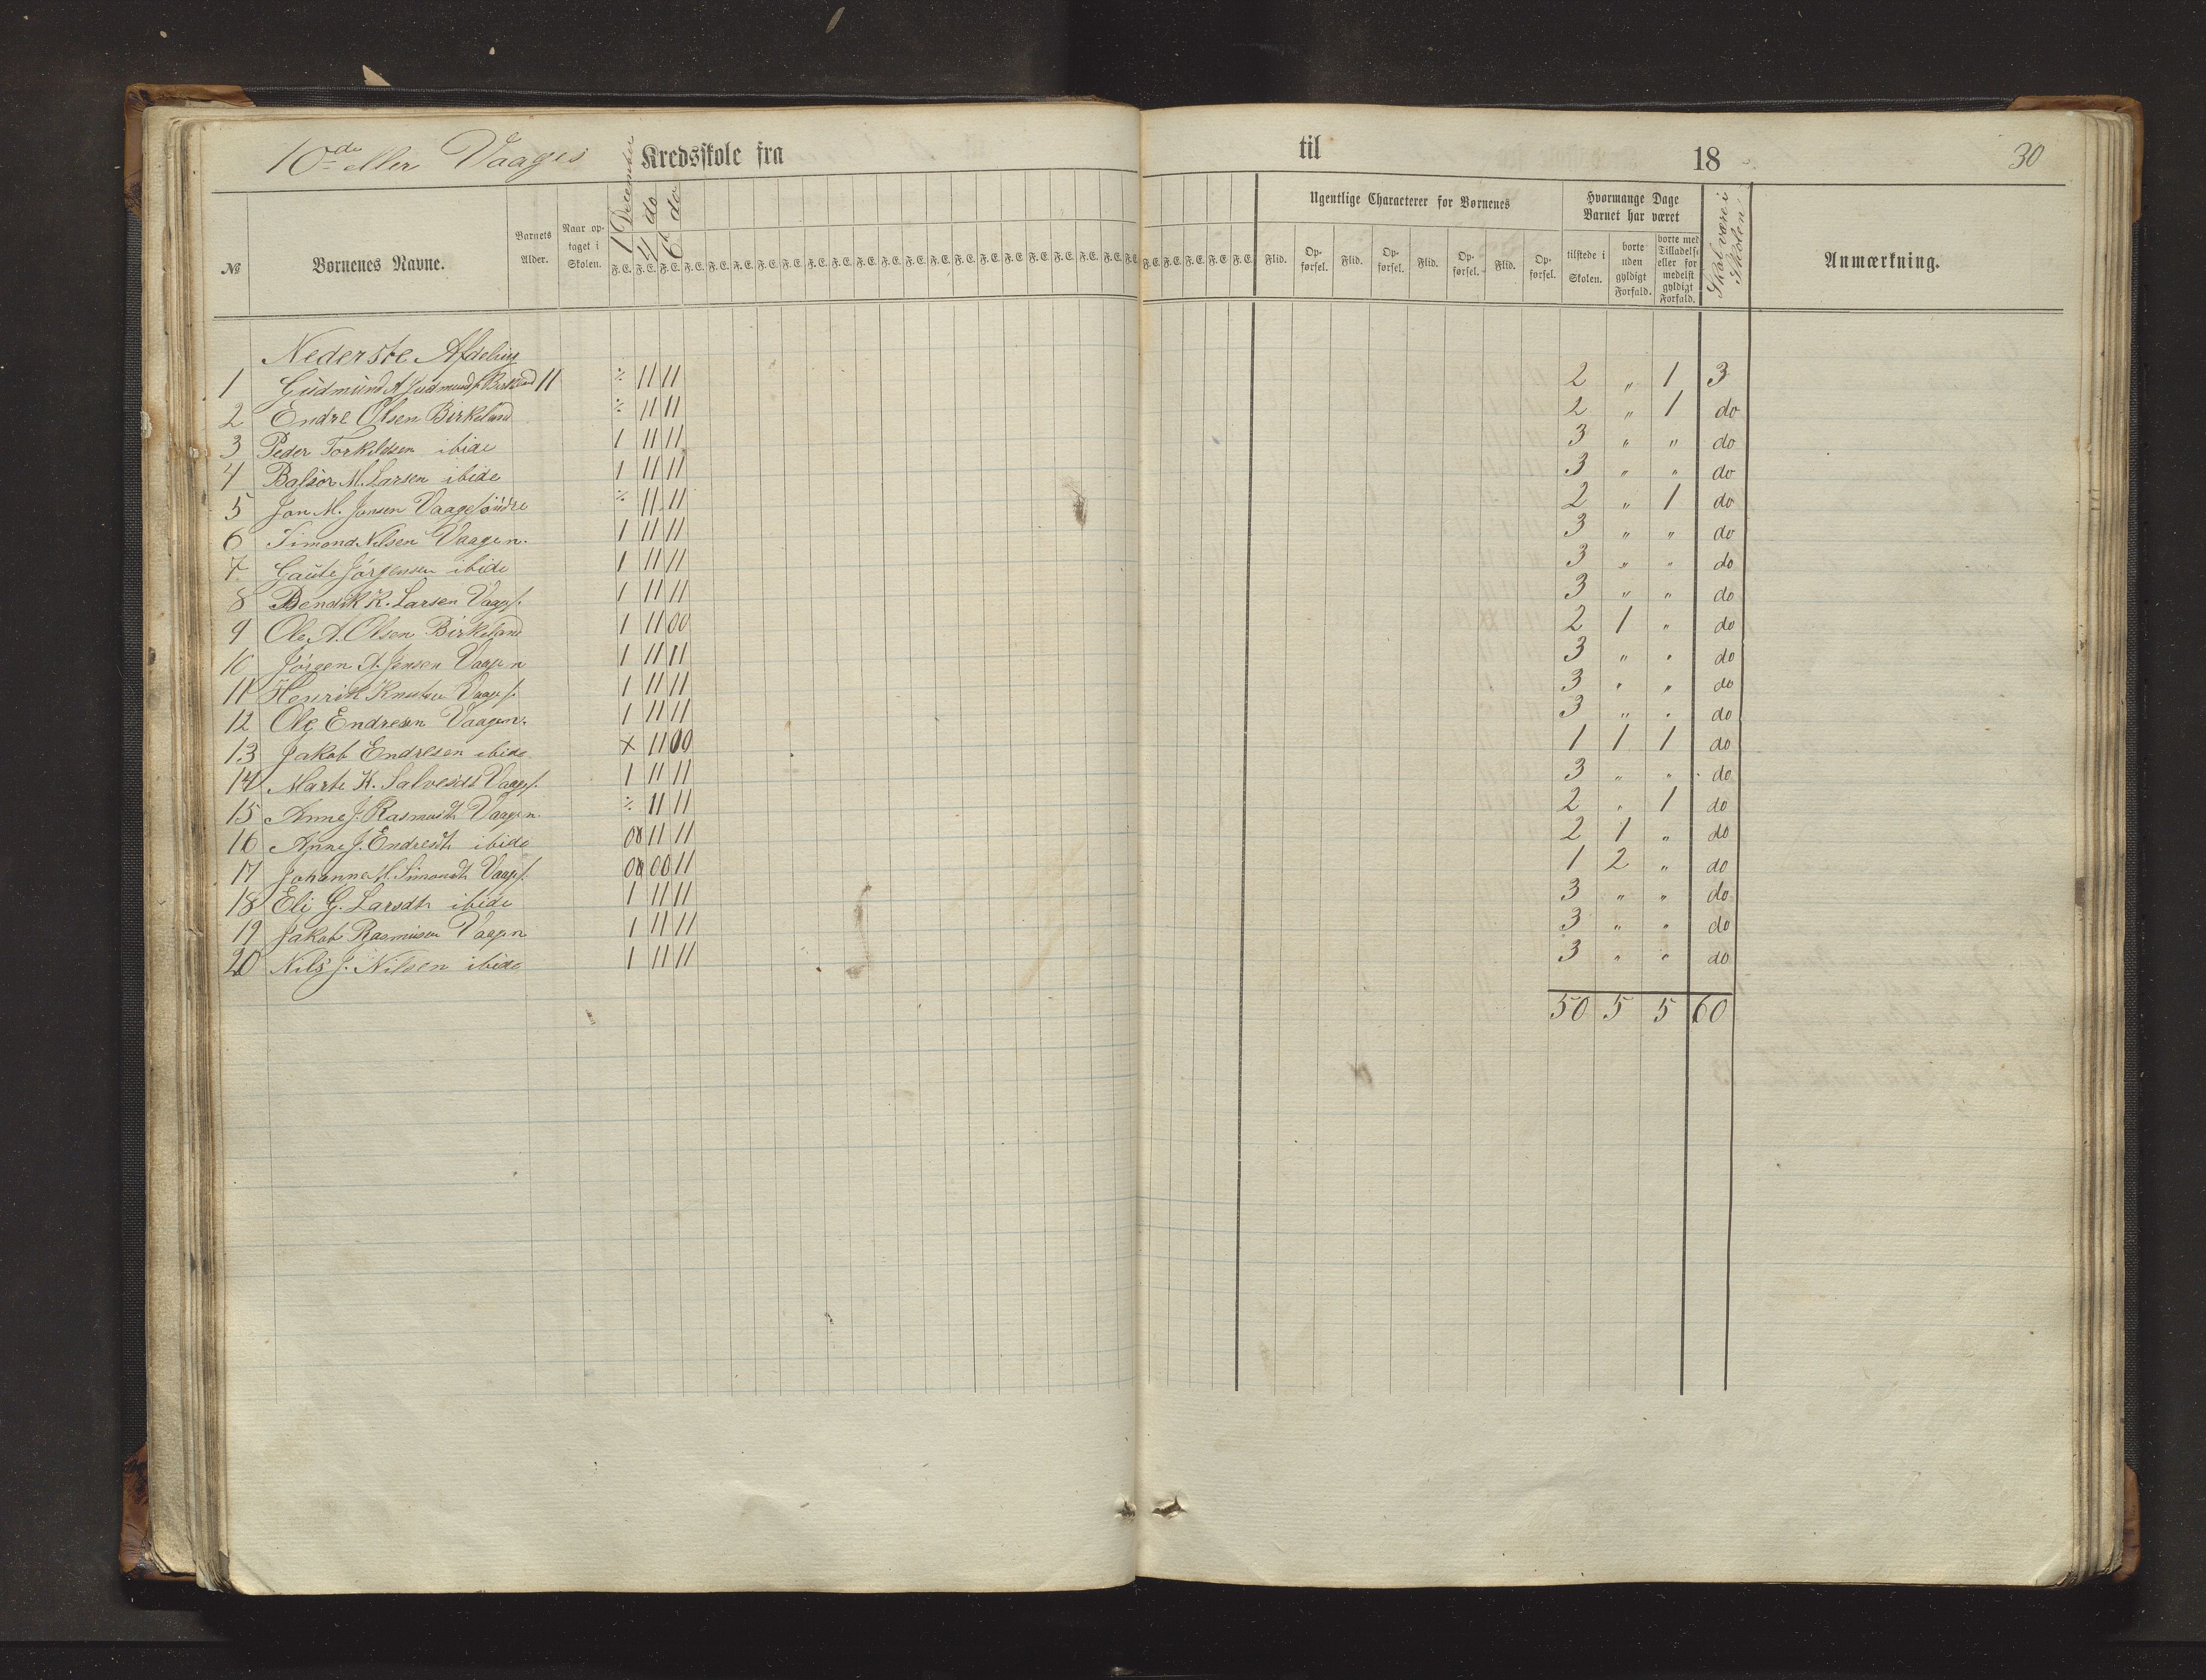 10de eller Vaages Kredsskole fra til 18 30
№ Børnenes Navne. Barnets Alder. Naar optaget i Skolen. 1 December 4 do 6 do F. E. Ugentlige Characterer for Børnenes Flid. Opførsel. Flid. Opførsel. Flid. Opførsel. Flid. Opførsel. Hvormange Dage Barnet har været tilstede i Skolen. borte uden gyldigt Forfald. borte med Tilladelse eller formedelst gyldigt Forfald. Skal være i Skolen Anmærkning.
Nederste Afdeling
1 Gudmund A Gudmunds. Birkeland 11 ٪ 11 11 2 " 1 3
2 Endre Olsen Birkeland ٪ 11 11 2 " 1 do
3 Peder Torkildsen ibide 1 11 11 3 " " do
4 Balser M. Larsen ibide 1 11 11 3 " " do
5 Jon M. Jonsen Vaage søndre ٪ 11 11 2 " 1 do
6 Simond Nilsen Vaage n. 1 11 11 3 " " do
7 Gaute Jørgensen ibide 1 11 11 3 " " do
8 Bendik K. Larsen Vaage s. 1 11 11 3 " " do
9 Ole A. Olsen Birkeland 1 11 00 2 1 " do
10 Jørgen A. Jensen Vaage n 1 11 11 3 " " do
11 Henrik Knutsen Vaage s. 1 11 11 3 " " do
12 Ole Endresen Vaage n. 1 11 11 3 " " do
13 Jakob Endresen ibide x 11 00 1 1 1 do
14 Marte K. Salvesdt Vaage s. 1 11 11 3 " " do
15 Anne J. Rasmusdt. Vaage n ٪ 11 11 2 " 1 do
16 Anne J. Endresdt. ibide 00 11 11 2 1 " do
17 Johanne M. Simonsdt. Vaage s. 00 00 11 1 2 " do
18 Eli G. Larsdt. ibide 1 11 11 3 " " do
19 Jakob Rasmusen Vaage n 1 11 11 3 " " do
20 Nils J. Nilsen ibide 1 11 11 3 " " do
50 5 5 60